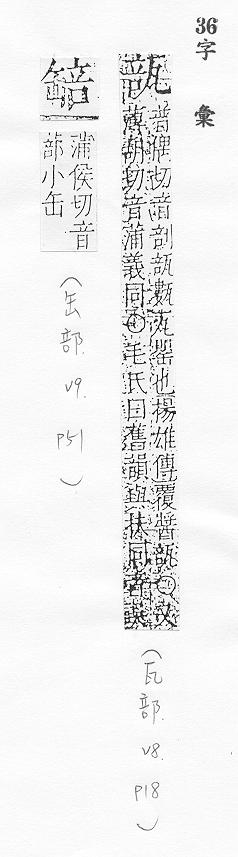 36
字彙
瓿
普猈切音剖瓿甊瓦器也楊雄傳覆醬瓿〇又
薄胡切音蒲義同〇毛氏曰舊韻與
(瓦部. v8. p18)
䍌
蒲侯切音
蔀小缶
(缶部. v9. p51)